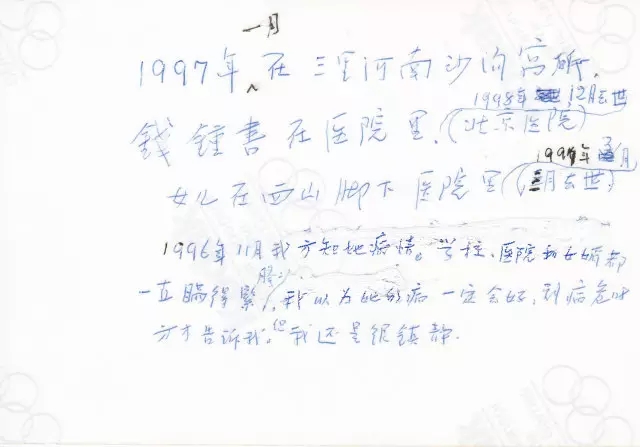 一月
1997年在三里河南沙沟寓所,
1998年 12月去世
錢鍾書在医院里,(北京医院)
1997年 月
女儿在西山脚下医院里(三月去世)
1996年11月我方知她病情。学校、医院和女婿都
一直瞒得紧,我以为她的病一定会好,到病危时
方才告诉我。但我还是很镇静.